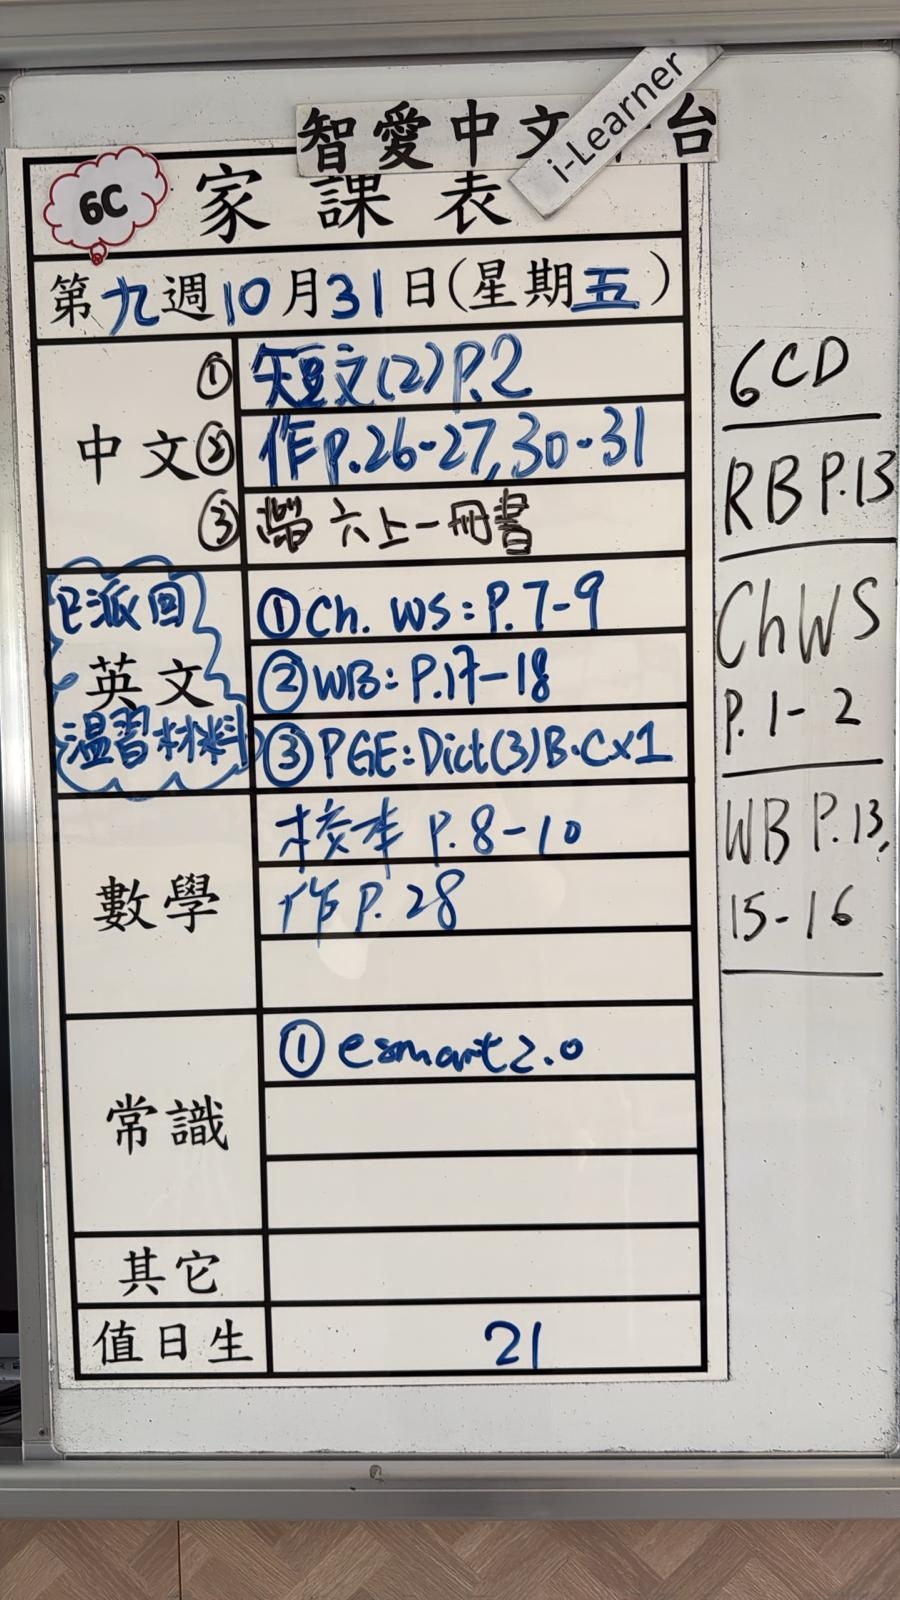 智愛中文 台
i-Learner
6C
家課表
第九週10月31日(星期五)
中文
① 短文(2)P.2
② 作p.26-27,30-31
③ 帶六上一冊書
已派回
英文
溫習材料
①Ch. WS: P.7-9
②WB: P.17-18
③PGE: Dict(3)B.Cx1
數學
校本 P.8-10
作P.28
常識
①esmart2.0
其它
值日生
21
6CD
RB P.13
ChWS
P.1-2
WB P.13,
15-16